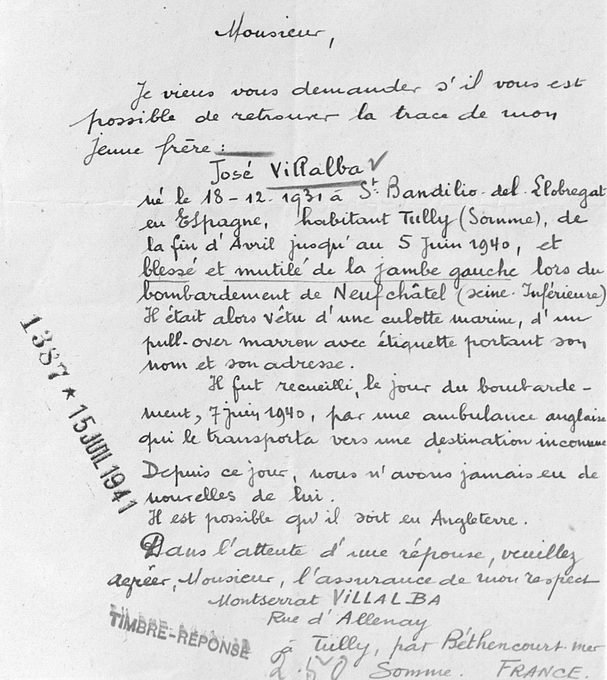 Monsieur,
Je viens vous demander s'il vous est
possible de retrouver la trace de mon
jeune frère :
José Villalba
né le 18-12-1931 à St. Bandilio-del-Llobregat
en Espagne, habitant Tully (Somme), de
la fin d'Avril jusqu'au 5 Juin 1940, et
blessé et mutilé de la jambe gauche lors du
bombardement de Neufchâtel (Seine-Inférieure)
Il était alors vêtu d'une culotte marine, d'un
pull-over marron avec étiquette portant son
nom et son adresse.
Il fut recueilli, le jour du bombarde-
ment, 7 juin 1940, par une ambulance anglaise
qui le transporta vers une destination inconnue
Depuis ce jour, nous n'avons jamais eu de
nouvelles de lui.
Il est possible qu'il soit en Angleterre.
Dans l'attente d'une réponse, veuillez
agréer, Monsieur, l'assurance de mon respect
Montserrat VILLALBA
Rue d'Allenay
à Tully, par Béthencourt-mer
Somme. FRANCE.
1387 * 15 JUIL 1941
TIMBRE-RÉPONSE
2.50